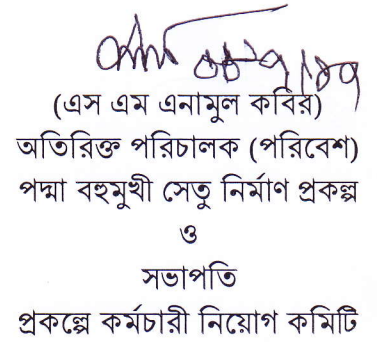 (এস এম এনামুল কবির)
অতিরিক্ত পরিচালক (পরিবেশ)
পদ্মা বহুমুখী সেতু নির্মাণ প্রকল্প
ও
সভাপতি
প্রকল্পে কর্মচারী নিয়োগ কমিটি